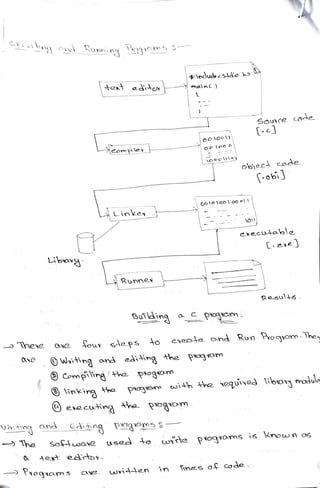 Creating and Running Programs :-
#include<stdio.h>
main()
{
}
text editor
Source code
[.c]
compiler
object code
[.obj]
Linker
Library
executable
[.exe]
Runner
Results.
Building a C program.
→ There are four steps to create and Run Program. They
are ① Writing and editing the program
② Compiling the program
③ linking the program with the required library module
④ executing the program.
Writing and Editing programs :-
→ The software used to write programs is known as
a text editor.
→ Programs are written in lines of code.